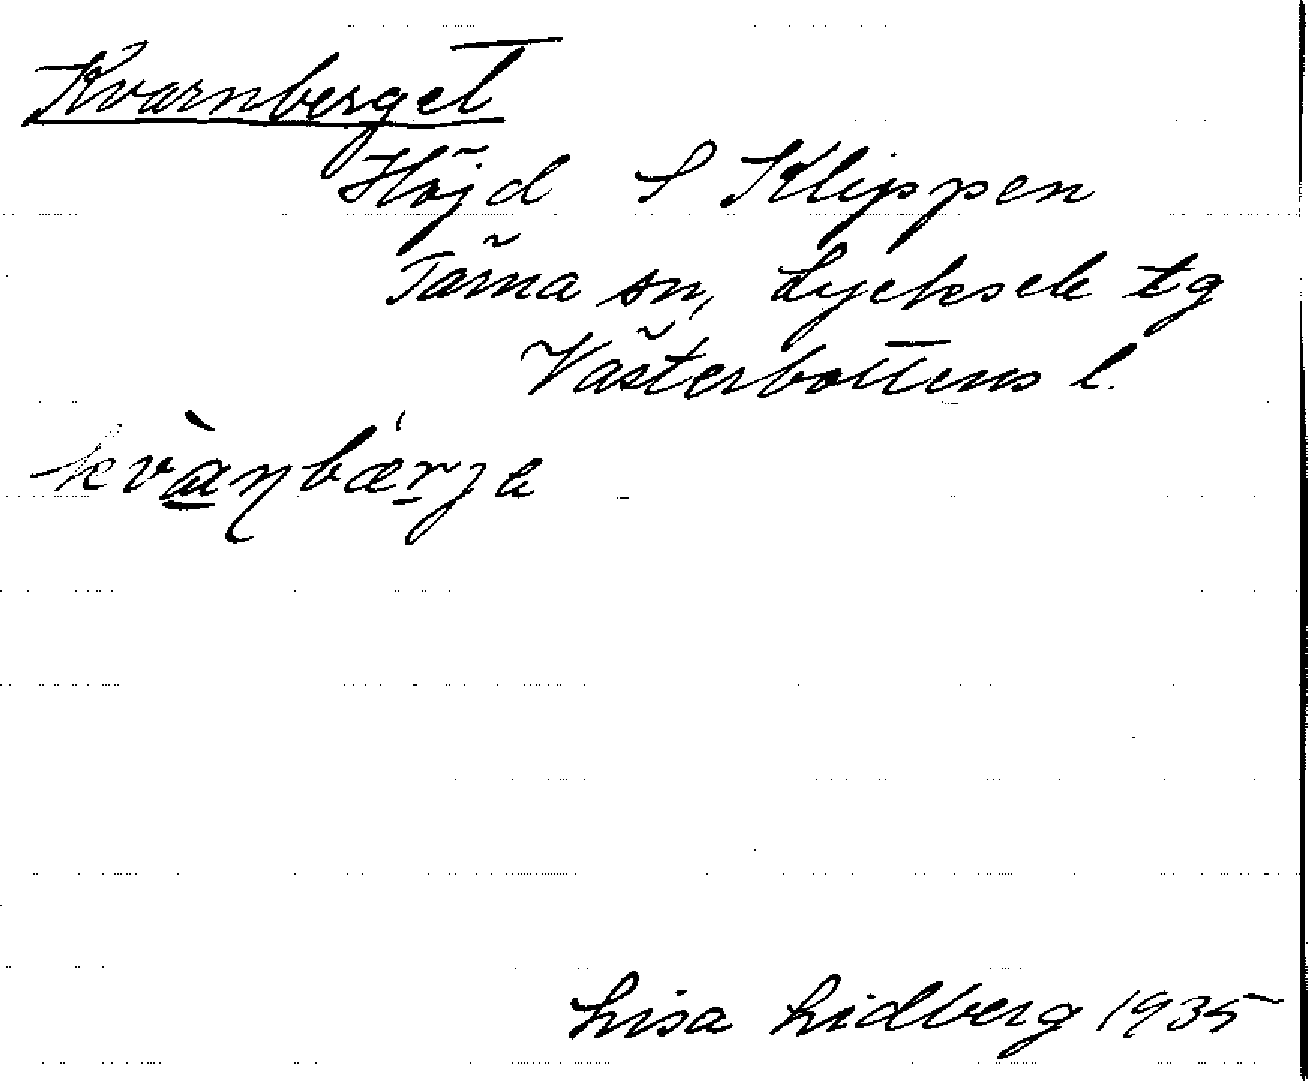 Kvarnberget
Höjd S Klippen
Tärna sn, Lycksele tg
Västerbottens l.
kvànbǽrje
Lisa Lidberg 1935